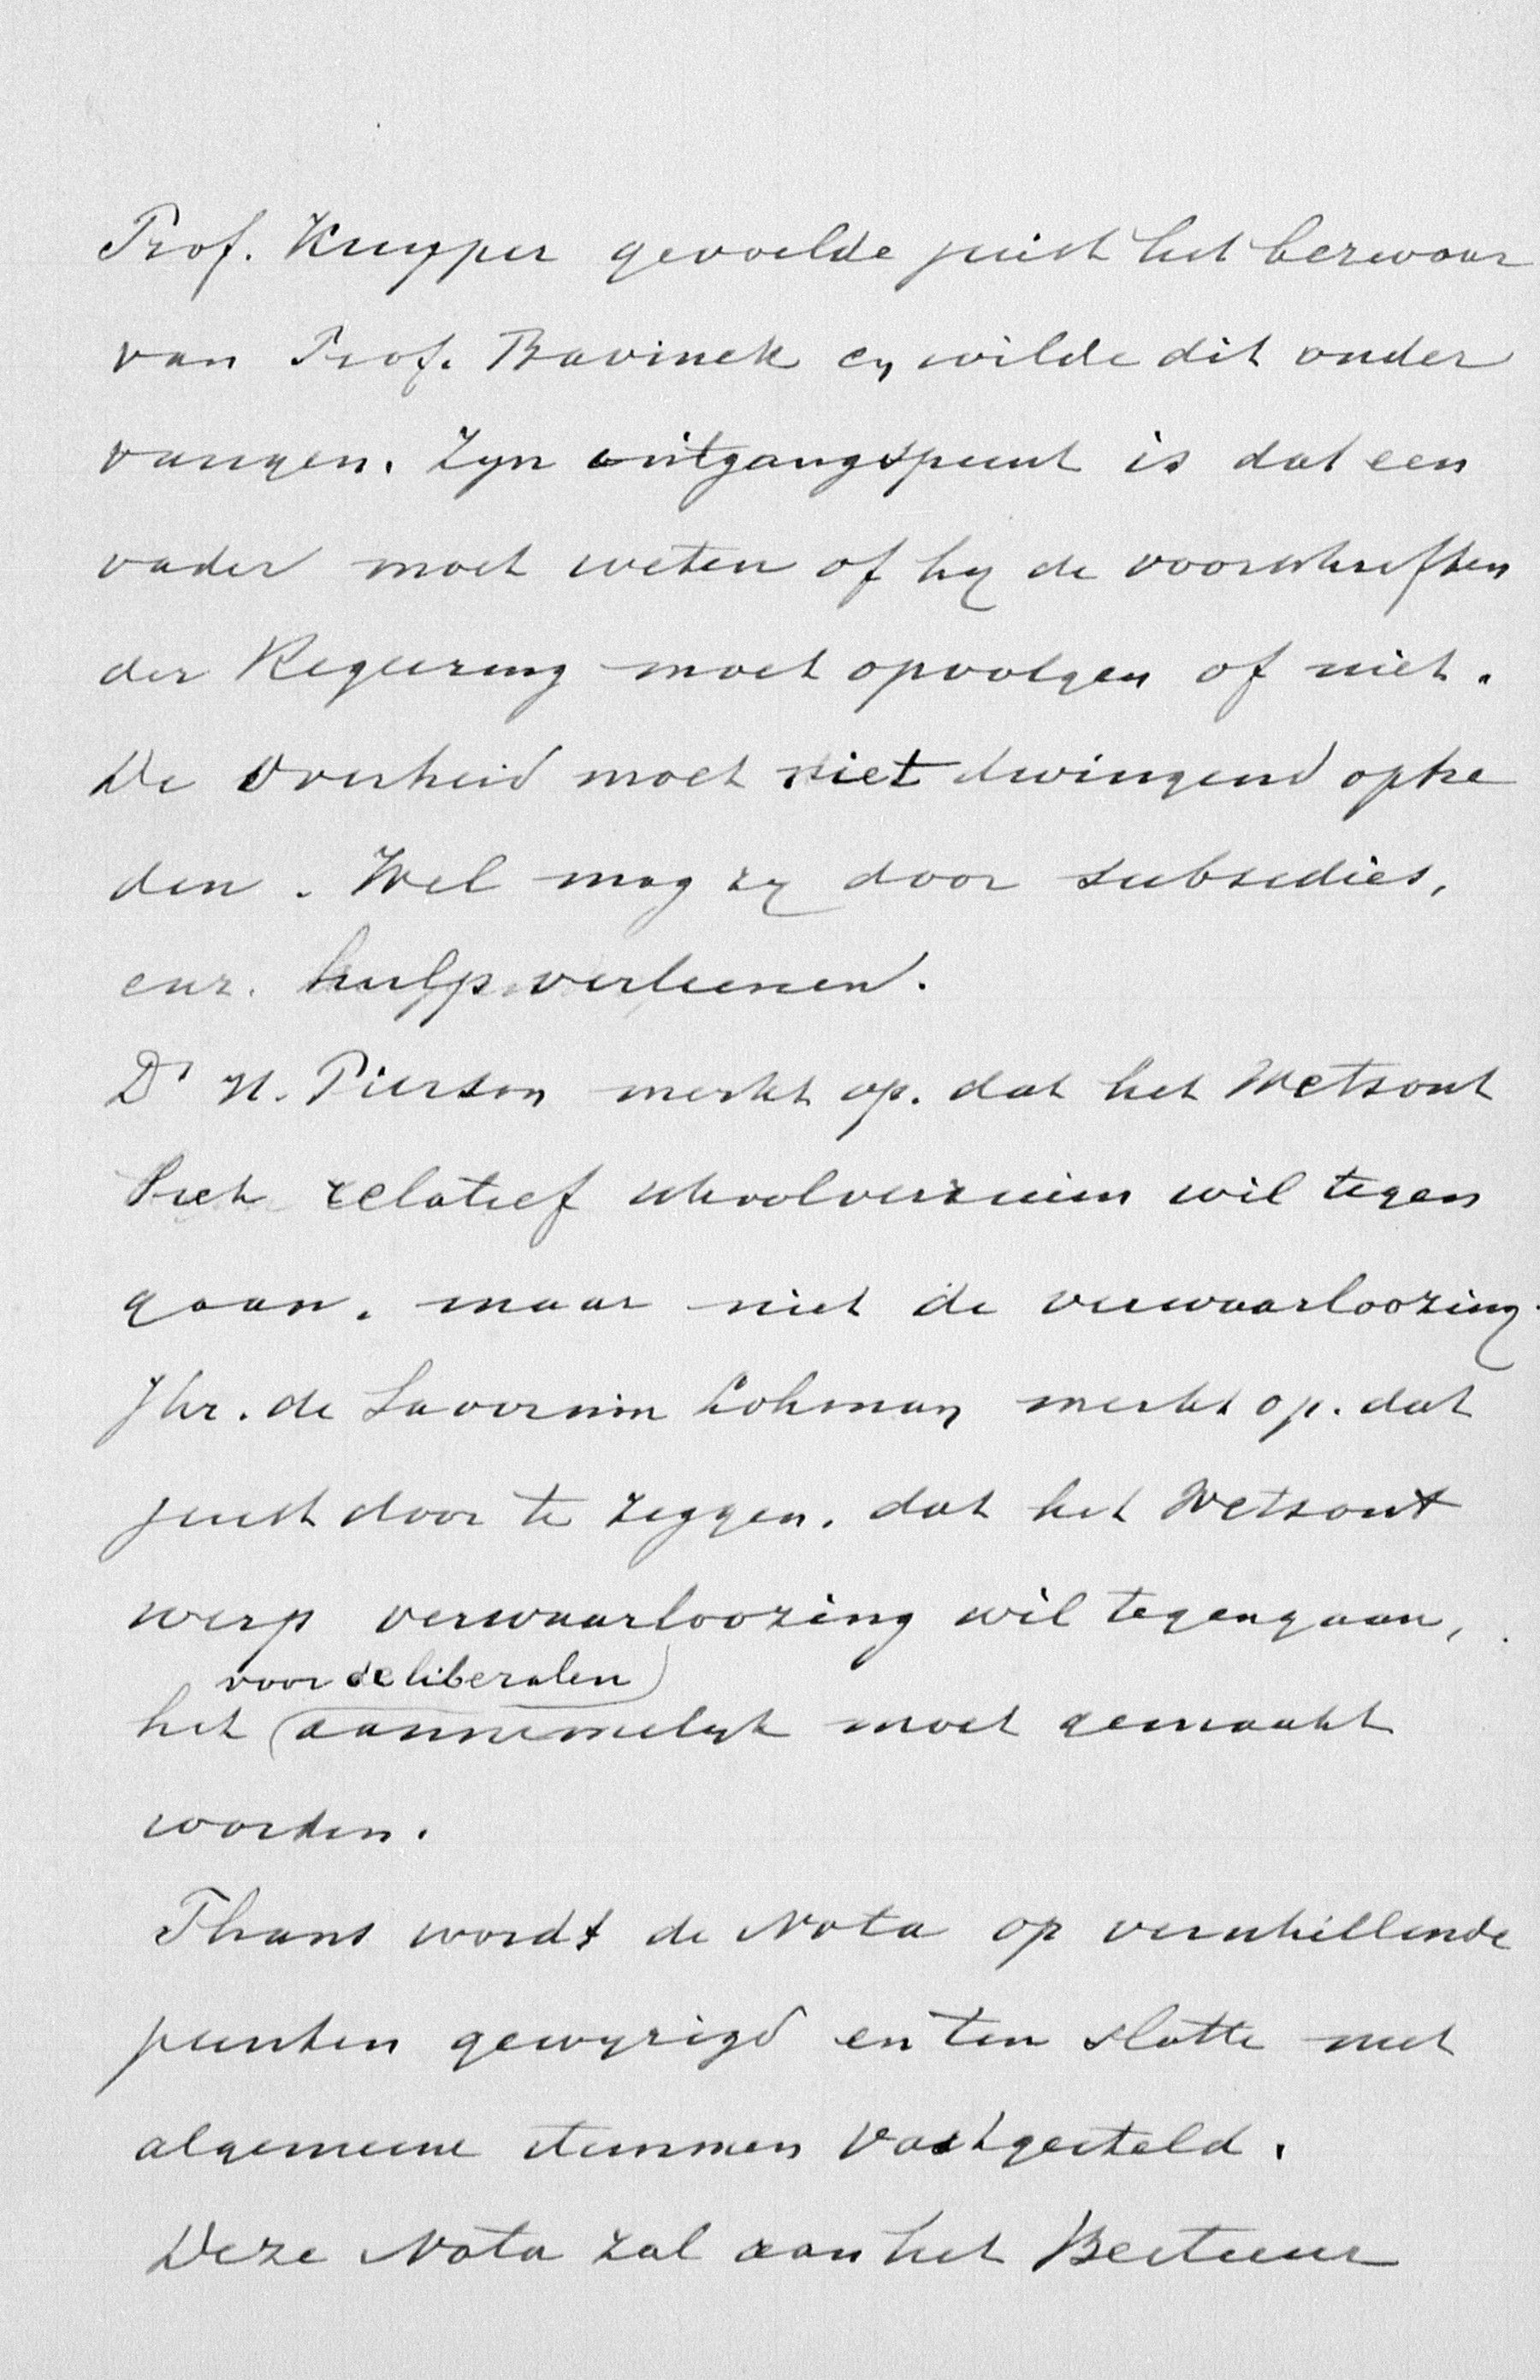 Prof. Kuyper gevoelde juist het bezwaar
van Prof. Bavinck en wilde dit onder
vangen. Zyn uitgangspunt is dat een
vader moet weten of hy de voorschriften
der Regeering moet opvolgen of niet.
De Overheid moet niet dwingend optre
den. Wel mag zy door subsidies,
enz. hulp verleenen.
Dr H. Pierson merkt op. dat het Wetsont
relatief schoolverzuim wil tegen
gaan. maar niet de verwaarloozing.
Jhr. de Savornin Lohman merkt op. dat
juist door te zeggen. dat het Wetsont
werp verwaarloozing wil tegengaan,
voor de liberalen
het aannemelyk moet gemaakt
worden.
Thans wordt de Nota op verschillende
punten gewyzigd en ten slotte met
algemeene stemmen vastgesteld.
Deze Nota zal aan het Bestuur